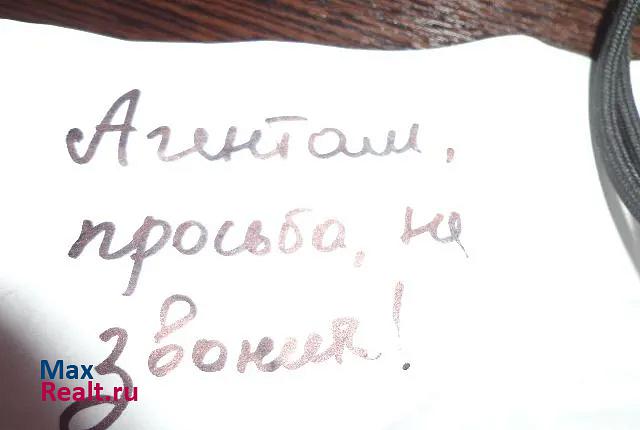 Агентам,
просьба, не
звонить!
Max
Realt.ru